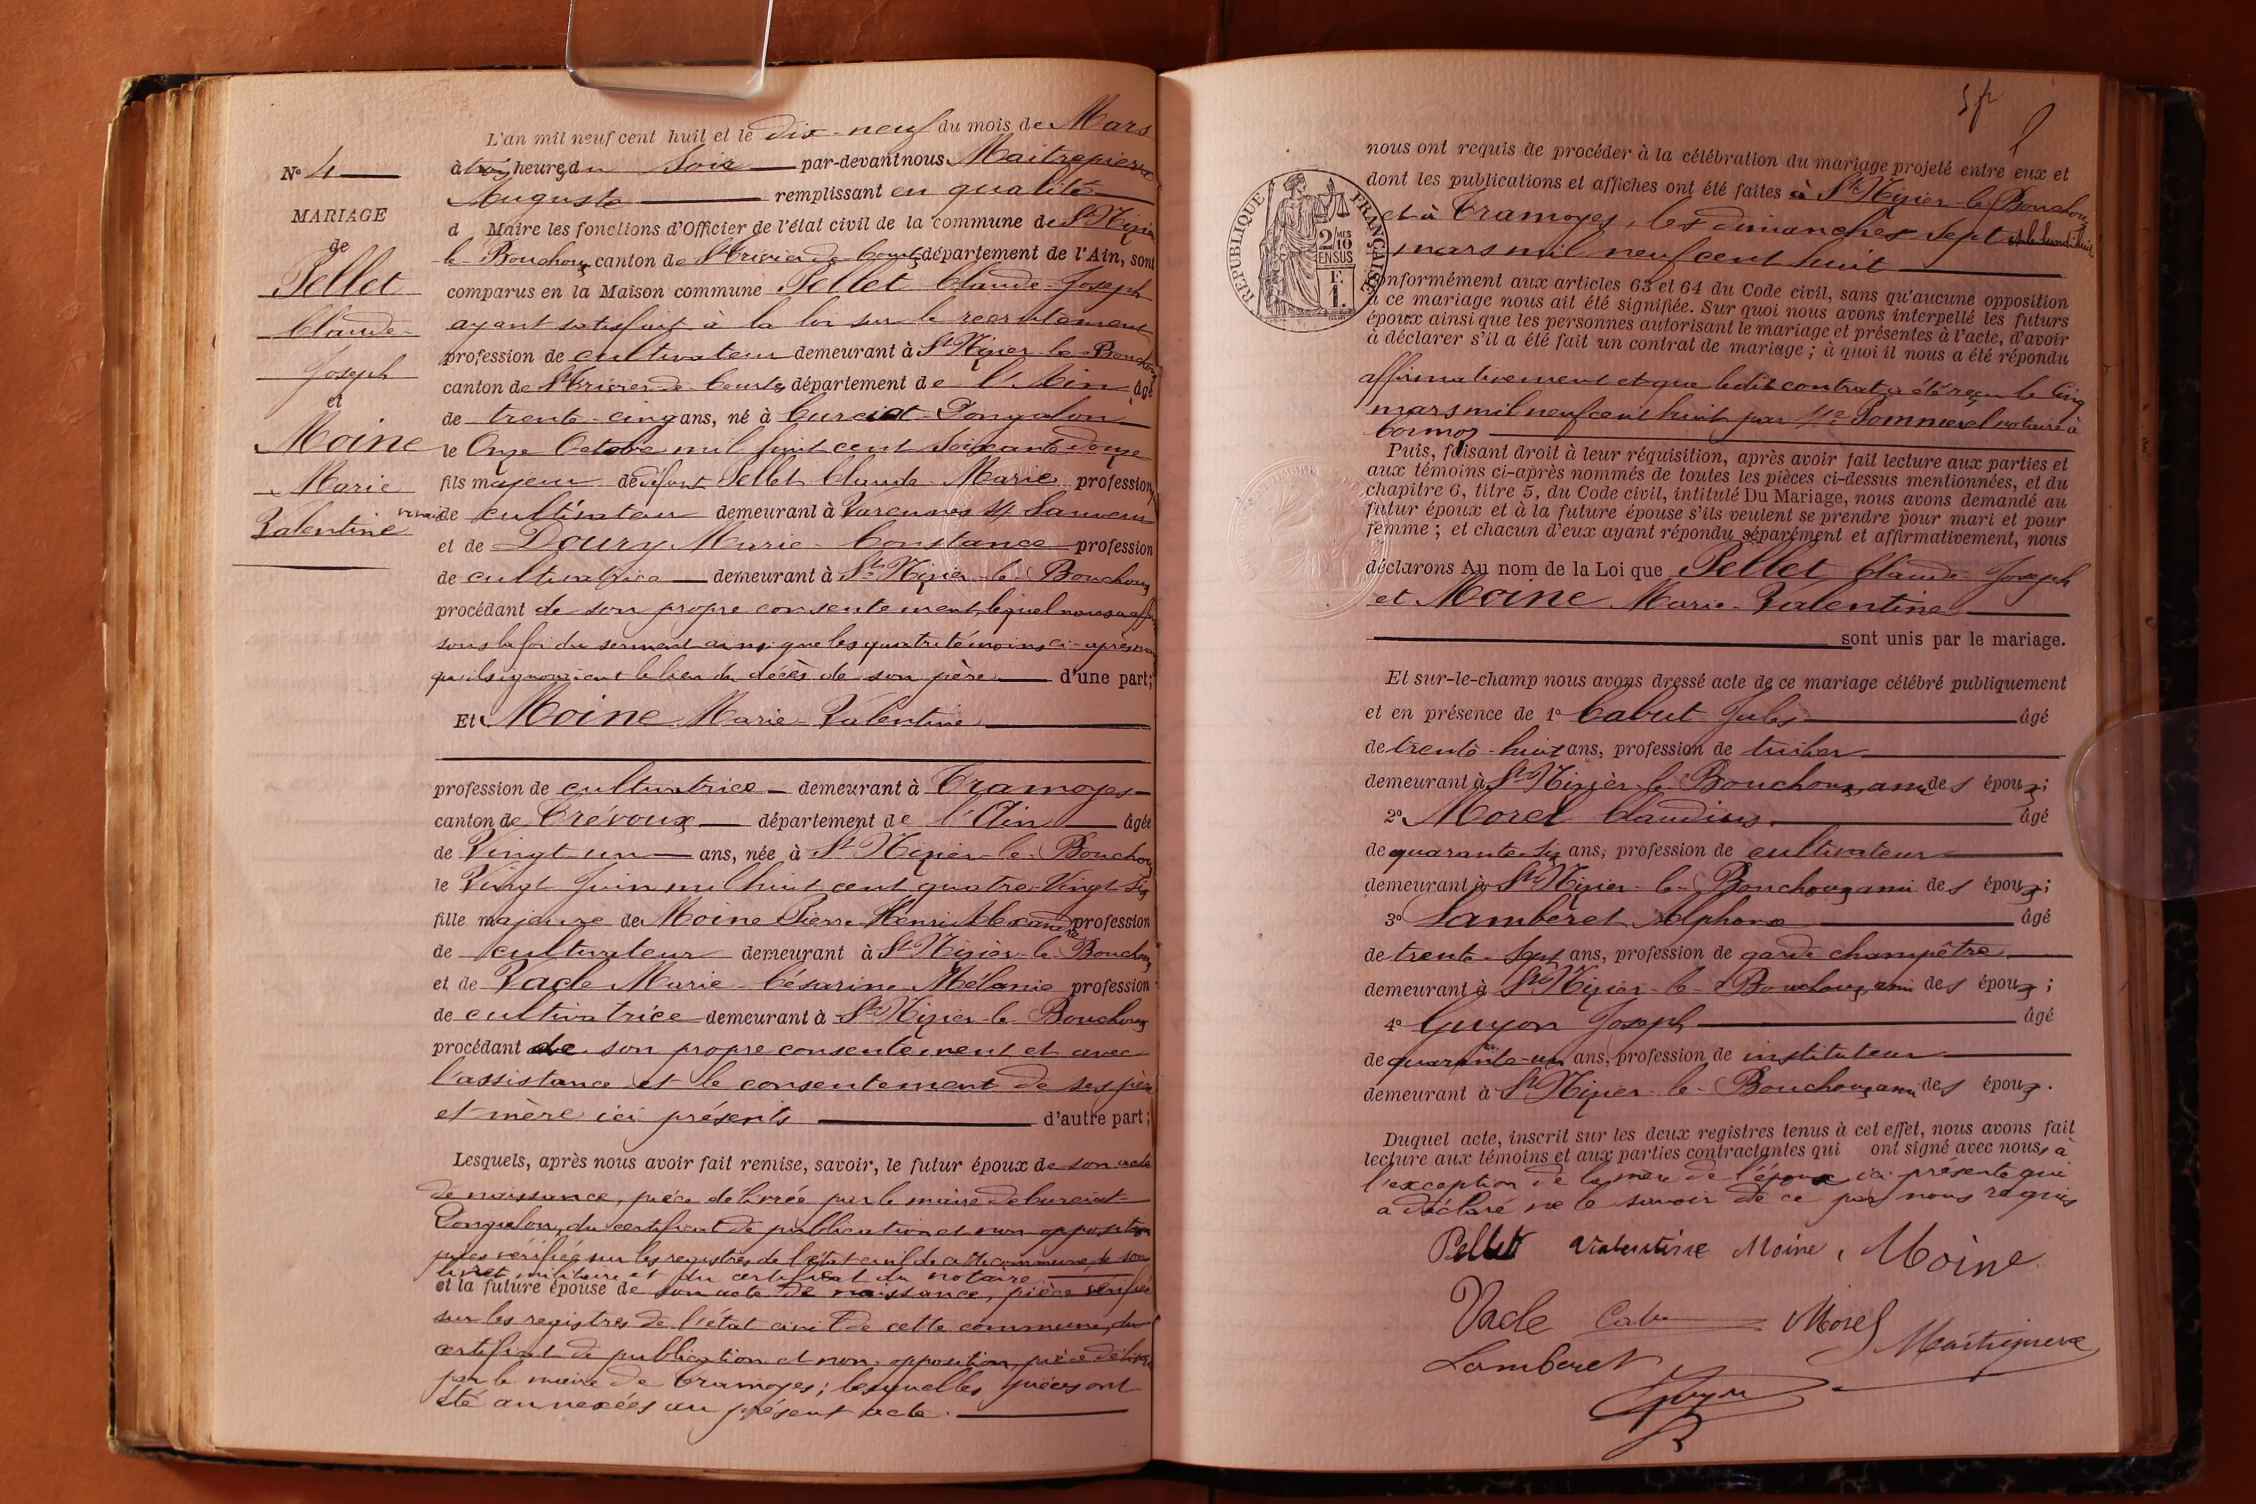 L'an mil neuf cent huit et le dix-neuf du mois de Mars
N° 4
à trois heures du soir par-devant nous Maitrepierre
Auguste remplissant en qualité
MARIAGE
de
d Maire les fonctions d'Officier de l'état civil de la commune de St Nizier
le Bouchoux canton de St Trivier de Courtes département de l'Ain, sont
Pellet
Claude
Joseph
et
Moine
Marie
Valentine
comparus en la Maison commune Pellet Claude Joseph
ayant satisfait à la loi sur le recrutement
profession de cultivateur demeurant à St Nizier le Bouchoux
canton de St Trivier de Courtes département de l'Ain âgé
de trente-cinq ans, né à Curciat-Dongalon
le Onze Octobre mil huit cent soixante douze
fils majeur de défunt Pellet Claude Marie profession
de cultivateur demeurant à Varennes St Sauveur
et de Doury Marie Constance profession
de cultivatrice demeurant à St Nizier-le-Bouchoux
procédant de son propre consentement, lequel nous a
sous la foi du serment ainsi que les quatre témoins ci-après
qu'ils ignoraient le lieu du décès de son père d'une part;
Et Moine Marie-Valentine
profession de cultivatrice demeurant à Tramoyes
canton de Trévoux département de l'Ain âgée
de Vingt-un ans, née à St Nizier-le-Bouchoux
le Vingt Juin mil huit cent quatre-Vingt-six
fille majeure de Moine Pierre Henri Alexandre profession
de cultivateur demeurant à St Nizier-le-Bouchoux
et de Vacle Marie-Césarine Mélanie profession
de cultivatrice demeurant à St Nizier-le-Bouchoux
procédant de son propre consentement et avec
l'assistance et le consentement de ses père
et mère ici présents d'autre part;
Lesquels, après nous avoir fait remise, savoir, le futur époux de son acte
de naissance, pièce délivrée par le maire de Curciat-
Dongalon, du certificat de publication et non opposition
pièces vérifiées sur les registres de l'état civil de cette commune, de son
livret militaire et du certificat du notaire
et la future épouse de son acte de naissance, pièce vérifiée
sur les registres de l'état civil de cette commune, du
certificat de publication et non opposition, pièce délivrée
par le maire de Tramoyes; lesquelles pièces ont
été annexées au présent acte.
5 fr
nous ont requis de procéder à la célébration du mariage projeté entre eux et
dont les publications et affiches ont été faites à St Nizier-le-Bouchoux
et à Tramoyes, les dimanches sept et le lundi huit
mars mil neuf cent huit
RÉPUBLIQUE FRANÇAISE
2/10 MES
EN SUS
F.
1.
conformément aux articles 63 et 64 du Code civil, sans qu'aucune opposition
à ce mariage nous ait été signifiée. Sur quoi nous avons interpellé les futurs
époux ainsi que les personnes autorisant le mariage et présentes à l'acte, d'avoir
à déclarer s'il a été fait un contrat de mariage; à quoi il nous a été répondu
affirmativement et que ledit contrat a été reçu le Cinq
mars mil neuf cent huit par Me Pommerel notaire à
Cormoz
Puis, faisant droit à leur réquisition, après avoir fait lecture aux parties et
aux témoins ci-après nommés de toutes les pièces ci-dessus mentionnées, et du
chapitre 6, titre 5, du Code civil, intitulé Du Mariage, nous avons demandé au
futur époux et à la future épouse s'ils veulent se prendre pour mari et pour
femme; et chacun d'eux ayant répondu séparément et affirmativement, nous
déclarons Au nom de la Loi que Pellet Claude Joseph
et Moine Marie-Valentine
sont unis par le mariage.
Et sur-le-champ nous avons dressé acte de ce mariage célébré publiquement
et en présence de 1° Cabut Jules âgé
de trente-huit ans, profession de tuilier
demeurant à St Nizier-le-Bouchoux, ami des époux;
2° Morel Claudius âgé
de quarante-six ans, profession de cultivateur
demeurant à St Nizier-le-Bouchoux ami des époux;
3° Lamberet Alphonse âgé
de trente-sept ans, profession de garde champêtre
demeurant à St Nizier-le-Bouchoux, ami des époux;
4° Guyon Joseph âgé
de quarante-un ans, profession de instituteur
demeurant à St Nizier-le-Bouchoux ami des époux.
Duquel acte, inscrit sur les deux registres tenus à cet effet, nous avons fait
lecture aux témoins et aux parties contractantes qui ont signé avec nous, à
l'exception de la mère de l'époux ici présente qui
a déclaré ne le savoir de ce par nous requis
Pellet Valentine Moine, Moine
Vacle Morel
Lamberet Maitrepierre
Guyon